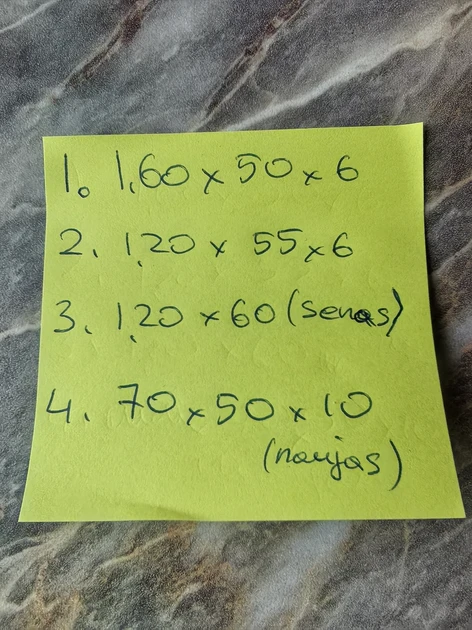 1. 1,60 x 50 x 6
2. 1,20 x 55 x 6
3. 1,20 x 60 (senas)
4. 70 x 50 x 10
(naujas)